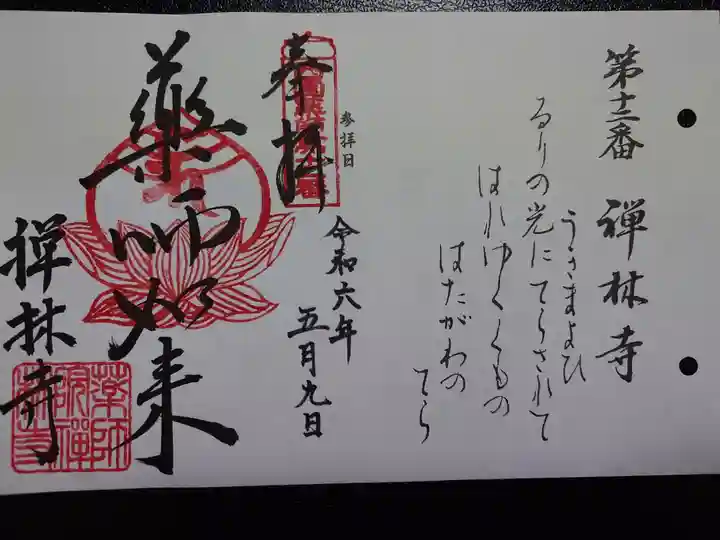 第十二番 禅林寺
うきまよひ
るりの光にてらされて
はれゆくくもの
はたがわの
てら
参拝日
奉拝
令和六年
五月九日
薬師如来
禅林寺